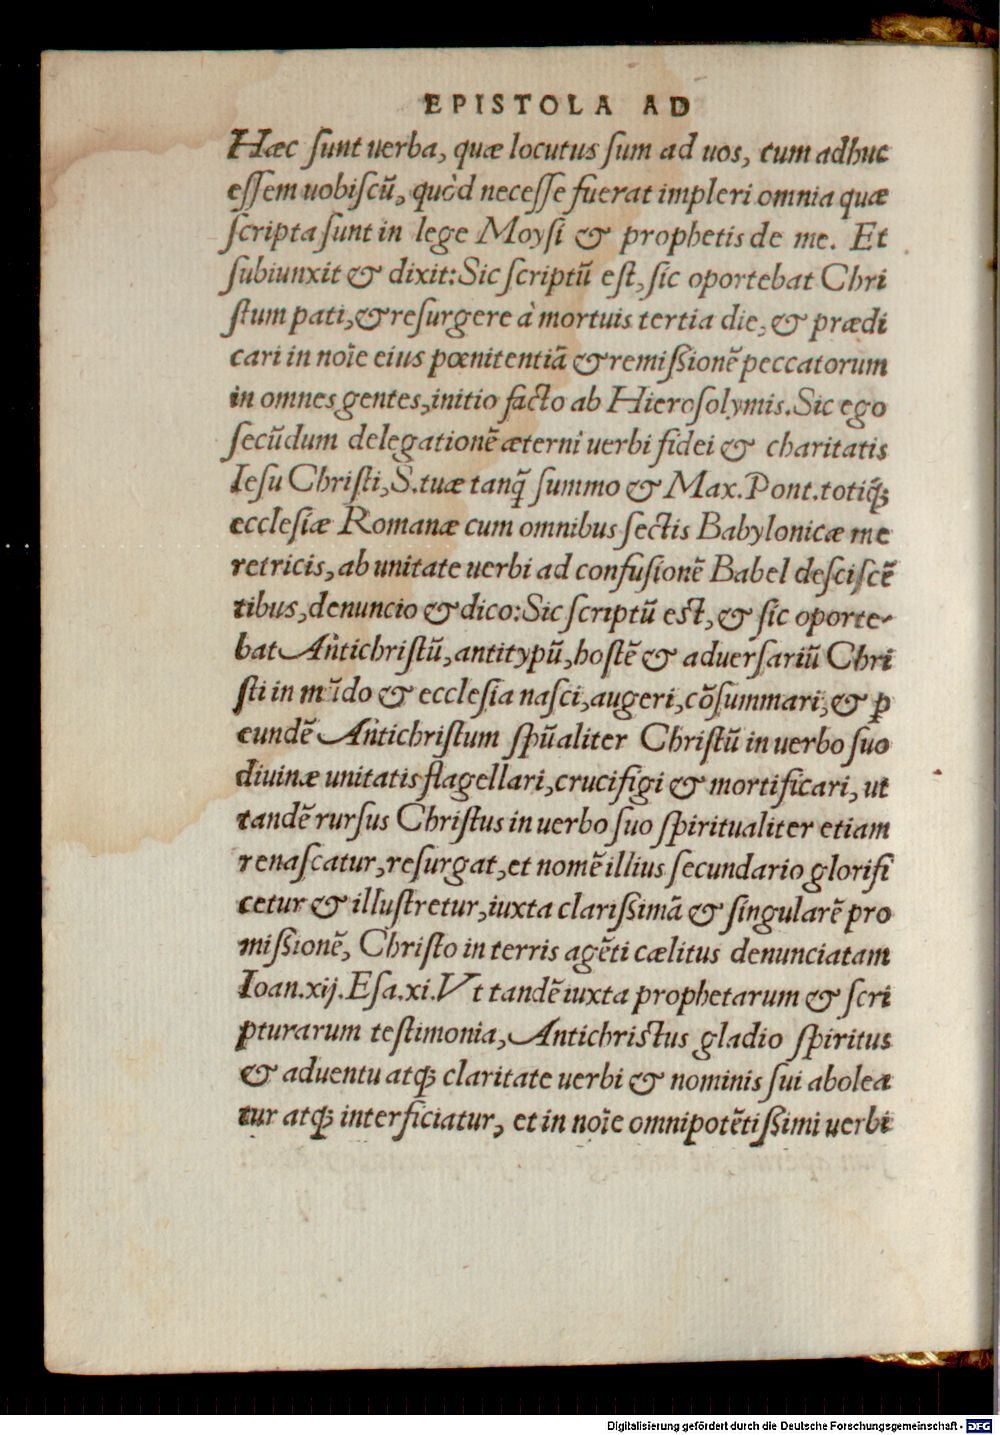 EPISTOLA AD
Hæc sunt uerba, quæ locutus sum ad uos, cum adhuc
essem uobiscū, quòd necesse fuerat impleri omnia quæ
scripta sunt in lege Moysi & prophetis de me. Et
subiunxit & dixit: Sic scriptū est, sic oportebat Chri
stum pati, & resurgere à mortuis tertia die, & prædi
cari in noīe eius pœnitentiā & remissionē peccatorum
in omnes gentes, initio facto ab Hierosolymis. Sic ego
secūdum delegationē æterni uerbi fidei & charitatis
Iesu Christi, S. tuæ tanq̃ summo & Max. Pont. totiq́ꝫ
ecclesiæ Romanæ cum omnibus sectis Babylonicæ me
retricis, ab unitate uerbi ad confusionē Babel desciscē
tibus, denuncio & dico: Sic scriptū est, & sic oporte-
bat Antichristū, antitypū, hostē & aduersariū Chri
sti in mūdo & ecclesia nasci, augeri, cōsummari, & ꝑ
eundē Antichristum spūaliter Christū in uerbo suo
diuinæ unitatis flagellari, crucifigi & mortificari, ut
tandē rursus Christus in uerbo suo spiritualiter etiam
renascatur, resurgat, et nomē illius secundario glorifi
cetur & illustretur, iuxta clarissimā & singularē pro
missionē, Christo in terris agēti cælitus denunciatam
Ioan. xij. Esa. xi. Vt tandē iuxta prophetarum & scri
pturarum testimonia, Antichristus gladio spiritus
& aduentu atqꝫ claritate uerbi & nominis sui abolea
tur atqꝫ interficiatur, et in noīe omnipotētissimi uerbi
Digitalisierung gefördert durch die Deutsche Forschungsgemeinschaft - DFG